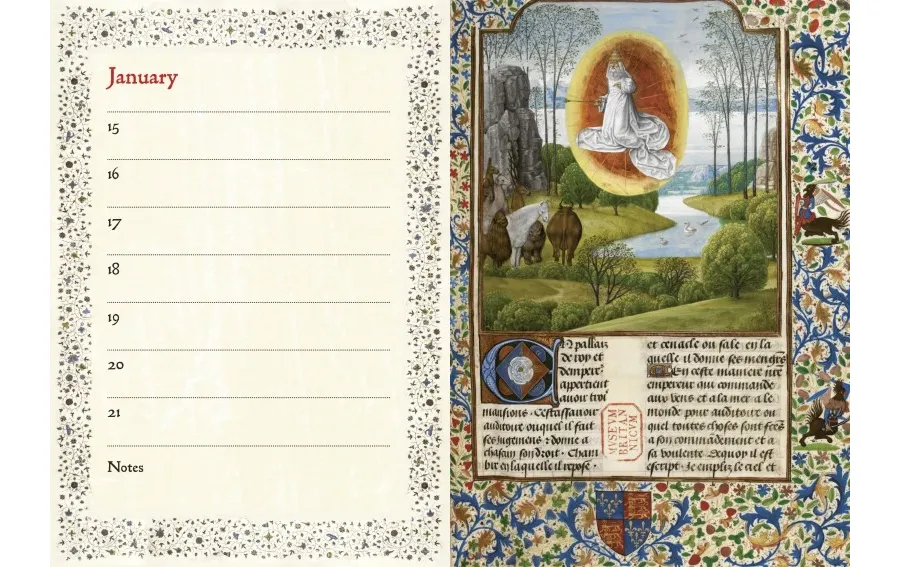 January
15
16
17
18
19
20
21
Notes
N pallaiz
de roy et
dempeir
appertient
auoir troi
mansions. Cestassauoir
auditoire ouquel il fait
ses iugemens & donne a
chascun son droit. Cham
bre en laquelle il repose.
et cenacle ou sale en la
quelle il donne ses mengiers
En ceste maniere nre
empereur qui commande
aux vens et a la mer a le
monde pour auditoire ou
quel toutes choses sont
a son commādement et a
sa voulente. Dequoy il est
escript. Je empliz le ciel et
MVSEVM
BRITAN
NICVM